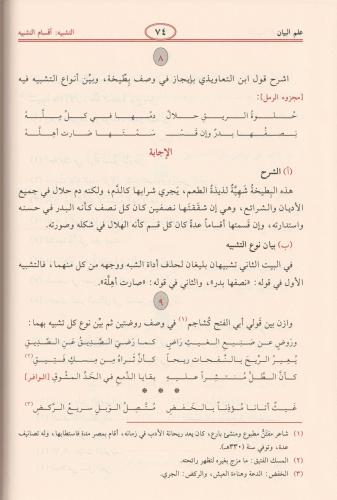 علم البيان ٧٤ التشبيه: أقسام التشبيه
٨
اشرح قول ابن التعاويذي بإيجاز في وصف بِطِّيخة، وبيِّن أنواع التشبيه فيه
[مجزوء الرمل]:
حُلْـوَةُ الـرِّيـقِ حـلالٌ دَمُـهـا فـي كـلِّ مِـلَّـهْ
نِـصْـفُـهـا بـدرٌ وإن قَـسَّـ ـمْـتَـهـا صـارت أهِـلَّـهْ
الإجابة
(أ) الشرح
هذه البِطِّيخةُ شَهِيَّةٌ لذيذةُ الطعم، يَجري شرابها كالدَّم، ولكنه دم حلال في جميع
الأديان والشرائع، وهي إن شققتَها نصفين كان كل نصف كأنه البدر في حسنه
واستدارته، وإن قسمتها أقساماً عدةً كان كل قسم كأنه الهلال في شكله وصورته.
(ب) بيان نوع التشبيه
في البيت الثاني تشبيهان بليغان لحذف أداة الشبه ووجهه من كل منهما، فالتشبيه
الأول في قوله: «نصفها بدر»، والثاني في قوله: «صارت أهلَّة».
٩
وازن بين قولَي أبي الفتح كُشاجم(١) في وصف روضتين ثم بيِّن نوع كل تشبيه بهما:
وَرَوضٍ عن صَنِيعِ الغَيثِ راضٍ كما رَضِيَ الصَّدِيقُ عَنِ الصَّدِيقِ
يُعِيرُ الرِّيحَ بالنَّفَحاتِ رِيحاً كأنَّ ثَراهُ مِنْ مِسكٍ فَتِيقِ(٢)
كأنَّ الطَّلَّ مُنْتَشِراً عليهِ بقايا الدَّمعِ في الخَدِّ المَشُوقِ [الوافر]
* * *
غَيثٌ أتانا مُؤْذِناً بالخَفضِ مُتَّصِلُ الوَبْلِ سريعُ الرَّكضِ(٣)
(١) شاعر متفنِّن مطبوع ومنشئ بارع، كان يعد ريحانة الأدب في زمانه، أقام بمصر مدة فاستطابها، وله تصانيف
عدة، وتوفي سنة (٣٣٠هـ).
(٢) المسك الفتيق: ما مزج بغيره لتظهر رائحته.
(٣) الخفض: الدعة وهناءة العيش، والركض: الجري.